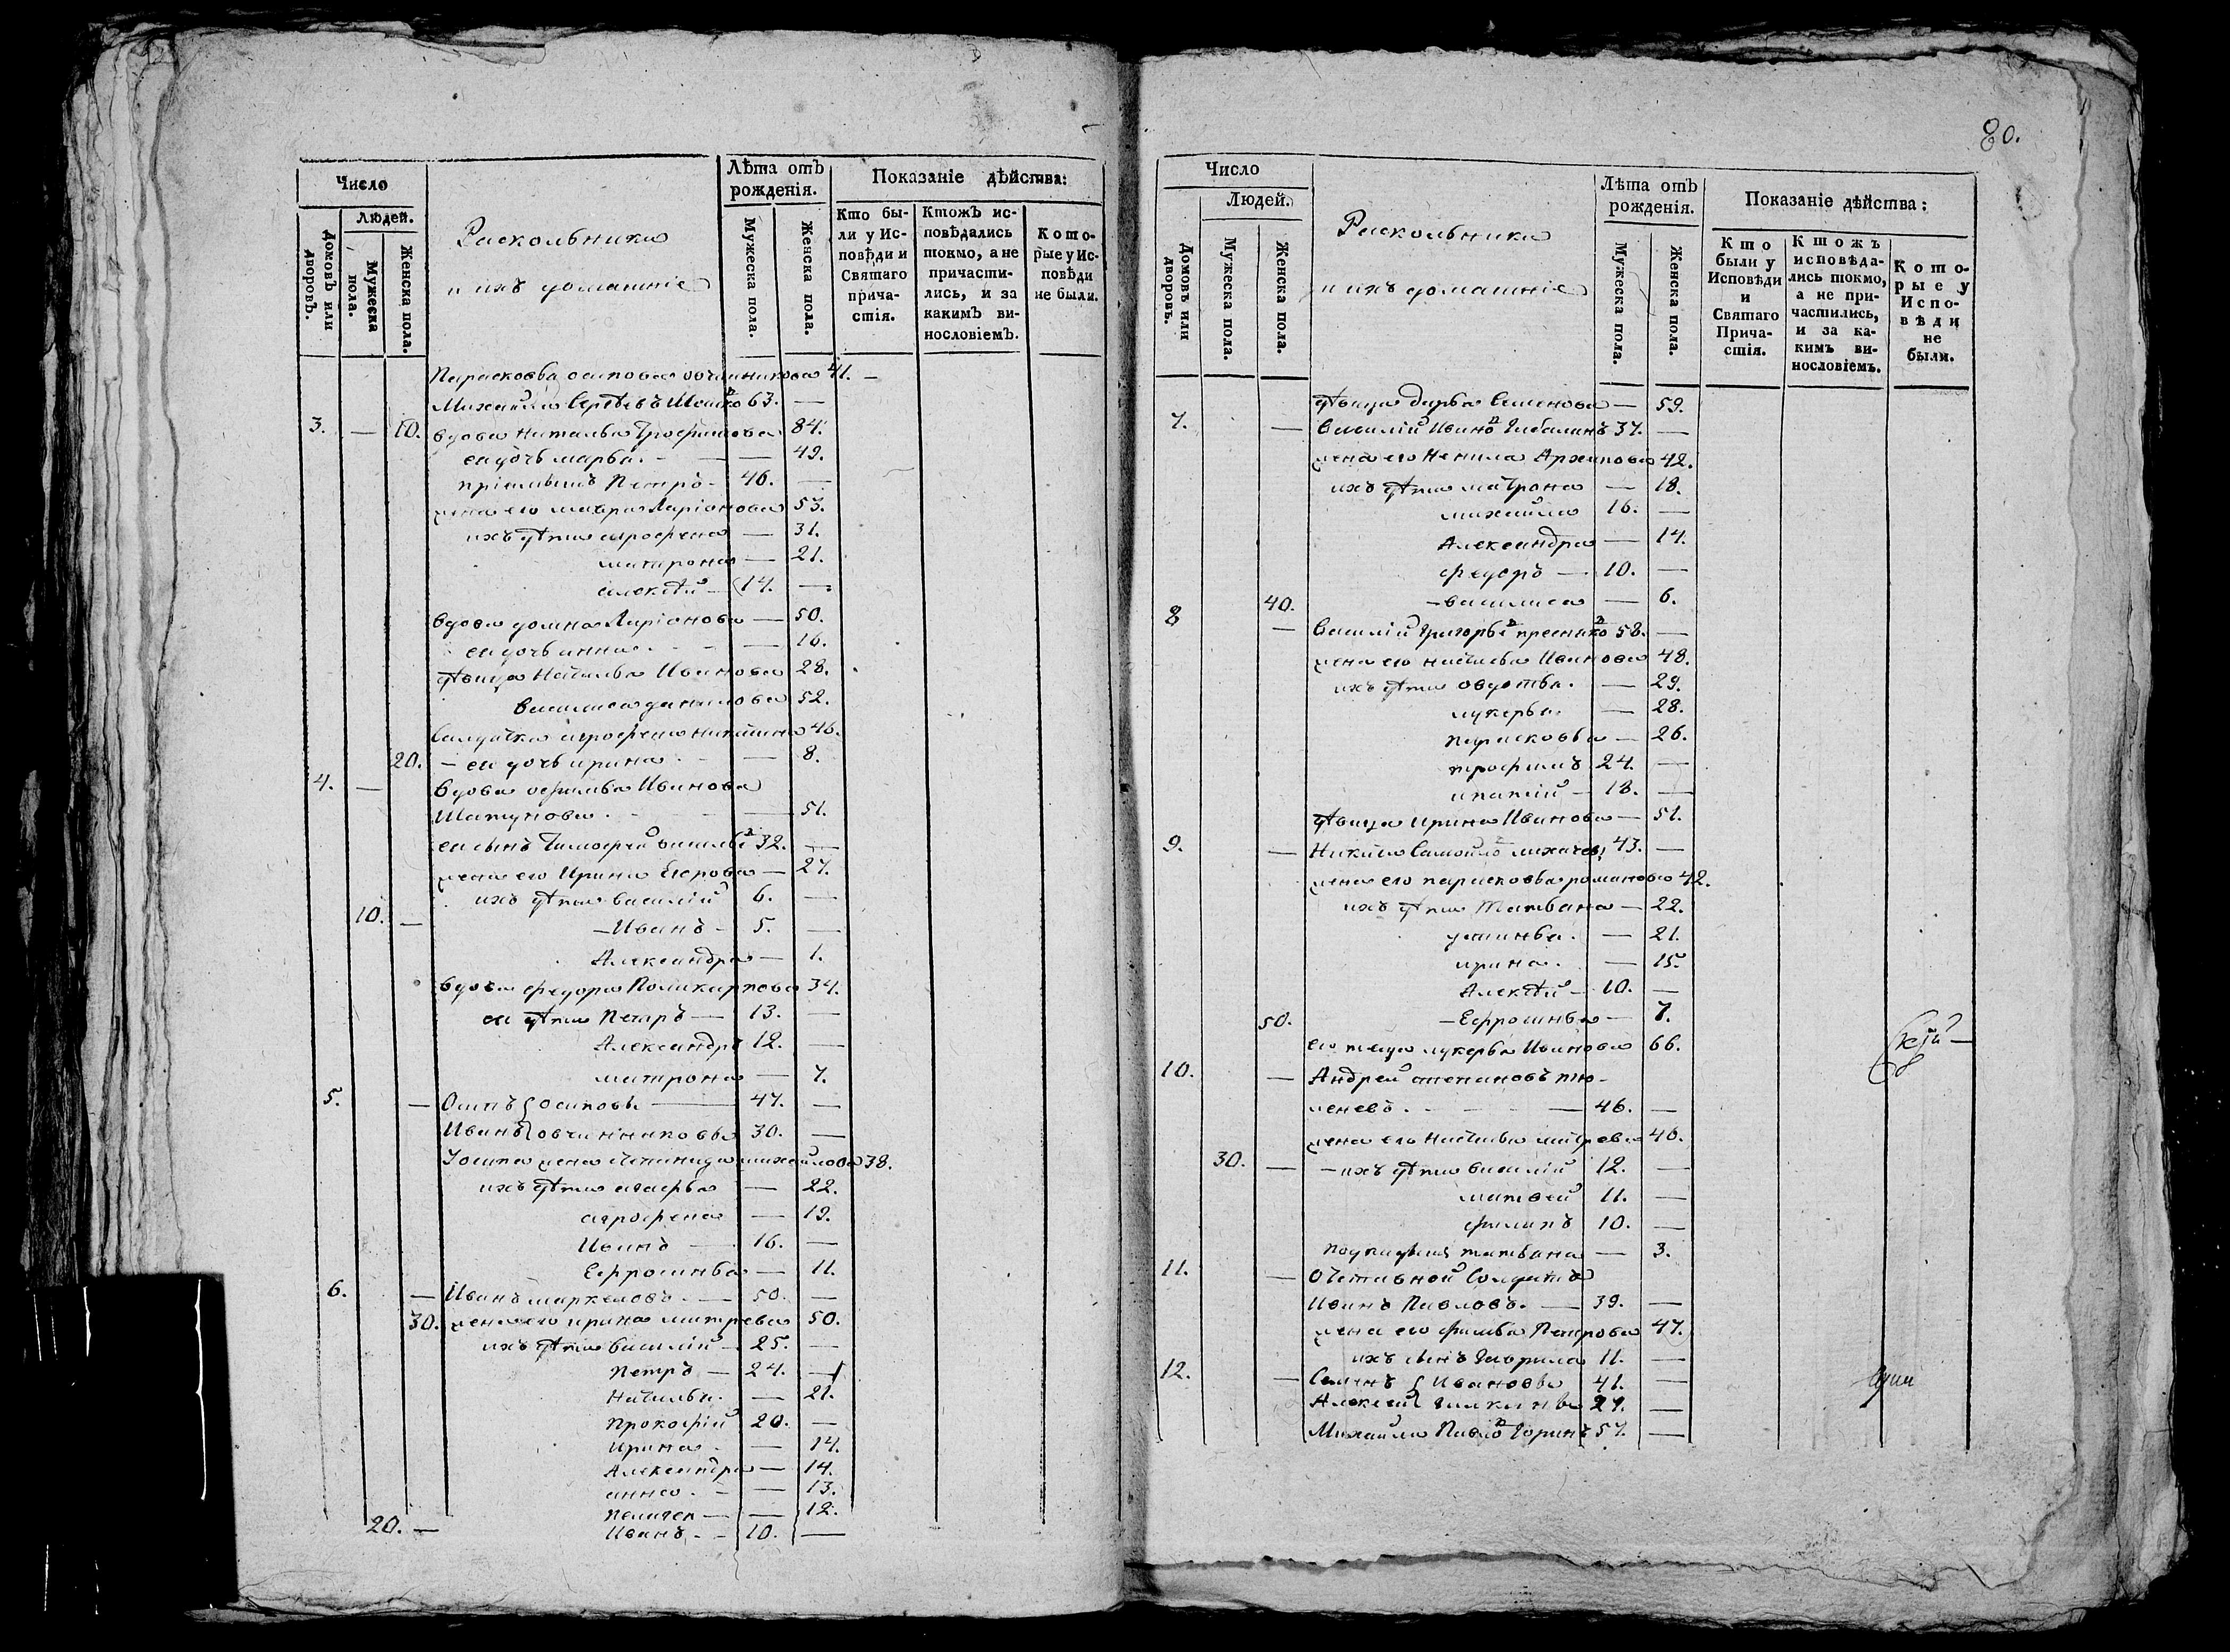 Число
Людей.
Домовъ или дворовъ.
Мужеска пола.
Женска пола.
Раскольники
и ихъ домашніе
Лѣта отъ рожденія.
Мужеска пола.
Женска пола.
Показаніе дѣйства:
Кто бы-
ли у Ис-
повѣди и
Святаго
прича-
стія.
Ктожъ ис-
повѣдались
токмо, а не
причасти-
лись, и за
какимъ ви-
нословіемъ.
Кото-
рые у Ис-
повѣди
не были.
Парасковья осипова овчинникова 41. —
Михайло Сергѣевъ 63. —
3. — 10. вдова Наталья Трофимова 84.
ея дочь марья — 49.
пріемышъ Петръ 46. —
жена его мавра Ларіонова 53.
ихъ дѣти агрофена — 31.
матрона — 21.
алексѣй 14. —
вдова домна Ларіонова — 50.
ея дочь анна — 16.
дѣвица Наталья Иванова 28.
василиса данилова 52.
Салдатка агрофена никитина 46.
20. — ея дочь ирина — 8.
4. — вдова офимья Иванова
Шатунова — 51.
ея сынъ Тимофей василье 32. —
жена его Ирина Егорова — 27.
ихъ дѣти василій 6. —
10. — Иванъ 5. —
Александра — 1.
вдова федора Поликарпова 34.
ея дѣти Петръ — 13. —
Александръ 12. —
матрона — 7.
5. — Осипъ { Осиповы — 47. —
Иванъ { овчинниковы 30. —
У осипа жена степанида михайлова 38.
ихъ дѣти агафья — 22.
агрофена — 19.
Иванъ — 16. —
Ефросинья — 11.
6. — Иванъ маркеловъ — 50. —
30. жена его ирина митрева 50.
ихъ дѣти василій 25. —
Петръ — 24. —
Наталья — 21.
Прокофій 20. —
Ирина — 17.
Александра — 14.
анна — 13.
Пелагея — 12.
20. — Иванъ 10. —
80.
Число
Людей.
Домовъ или дворовъ.
Мужеска пола.
Женска пола.
Раскольники
и ихъ домашніе
Лѣта отъ рожденія.
Мужеска пола.
Женска пола.
Показаніе дѣйства:
Кто
были у
Исповѣди
и
Святаго
Прича-
стія.
Ктожъ
исповѣда-
лись токмо,
а не при-
частились,
и за ка-
кимъ ви-
нословіемъ.
Кото-
рые у
Испо-
вѣди
не
были.
дѣвица дарья Семенова — 59.
7. — василій Ивано 37. —
жена его Ненила Архипова 42.
ихъ дѣти матрона — 18.
михайла 16. —
Александра — 14.
федоръ — 10. —
40. — василиса — 6.
8 — Василій Григорье 58. —
жена его наталья Иванова 48.
ихъ дѣти овдотья — 29.
лукерья — 28.
парасковья — 26.
трофимъ 24. —
ипатій 18. —
дѣвица ирина Иванова — 51.
9. — Никита Самойло лихачевъ 43. —
жена его парасковья романова 42.
ихъ дѣти Татьяна — 22.
устинья — 21.
ирина — 15.
Алексѣй 10. —
50. — Ефросинья — 7.
его теща лукерья Иванова 66.
10. — Андрей степановъ тю-
меневъ — 46. —
жена его наталья митрева 40.
30. — ихъ дѣти василій 12. —
матвей 11. —
филипъ 10. —
татьяна — 3.
11. — Отставной Солдатъ
Иванъ Павловъ — 39. —
жена его Петрова 47.
ихъ сынъ Гаврила 11. —
12. — Семенъ { Ивановы 41. —
Алексей { 27. —
Михайла Павло Горинъ 57. —